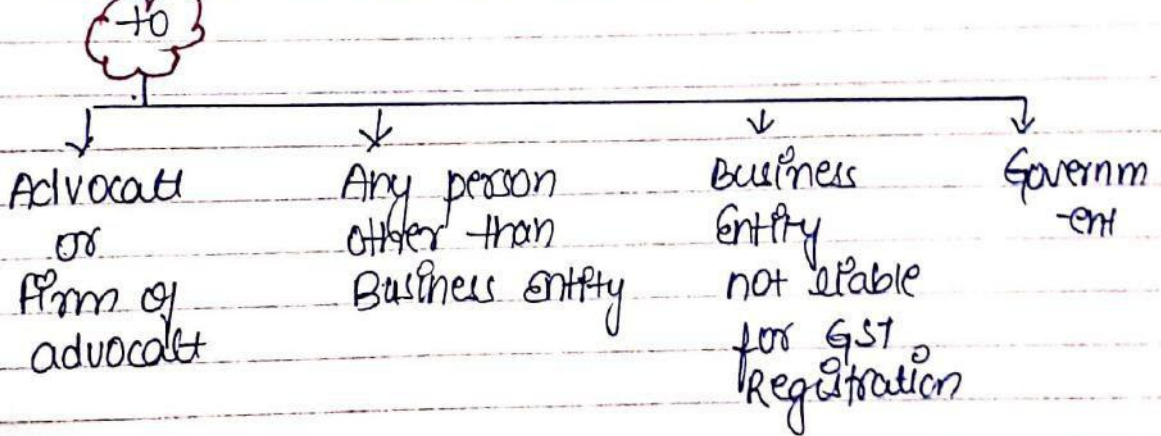 to
Advocate
or
Firm of
advocate
Any person
other than
Business entity
Business
Entity
not liable
for GST
Registration
Governm
-ent